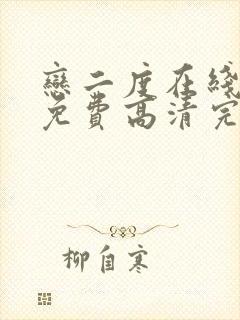 戀二度在綫
免費高清完
柳自寒